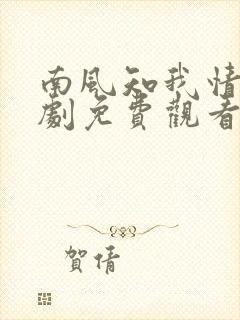 南風知我情
劇免費觀看
賀倩